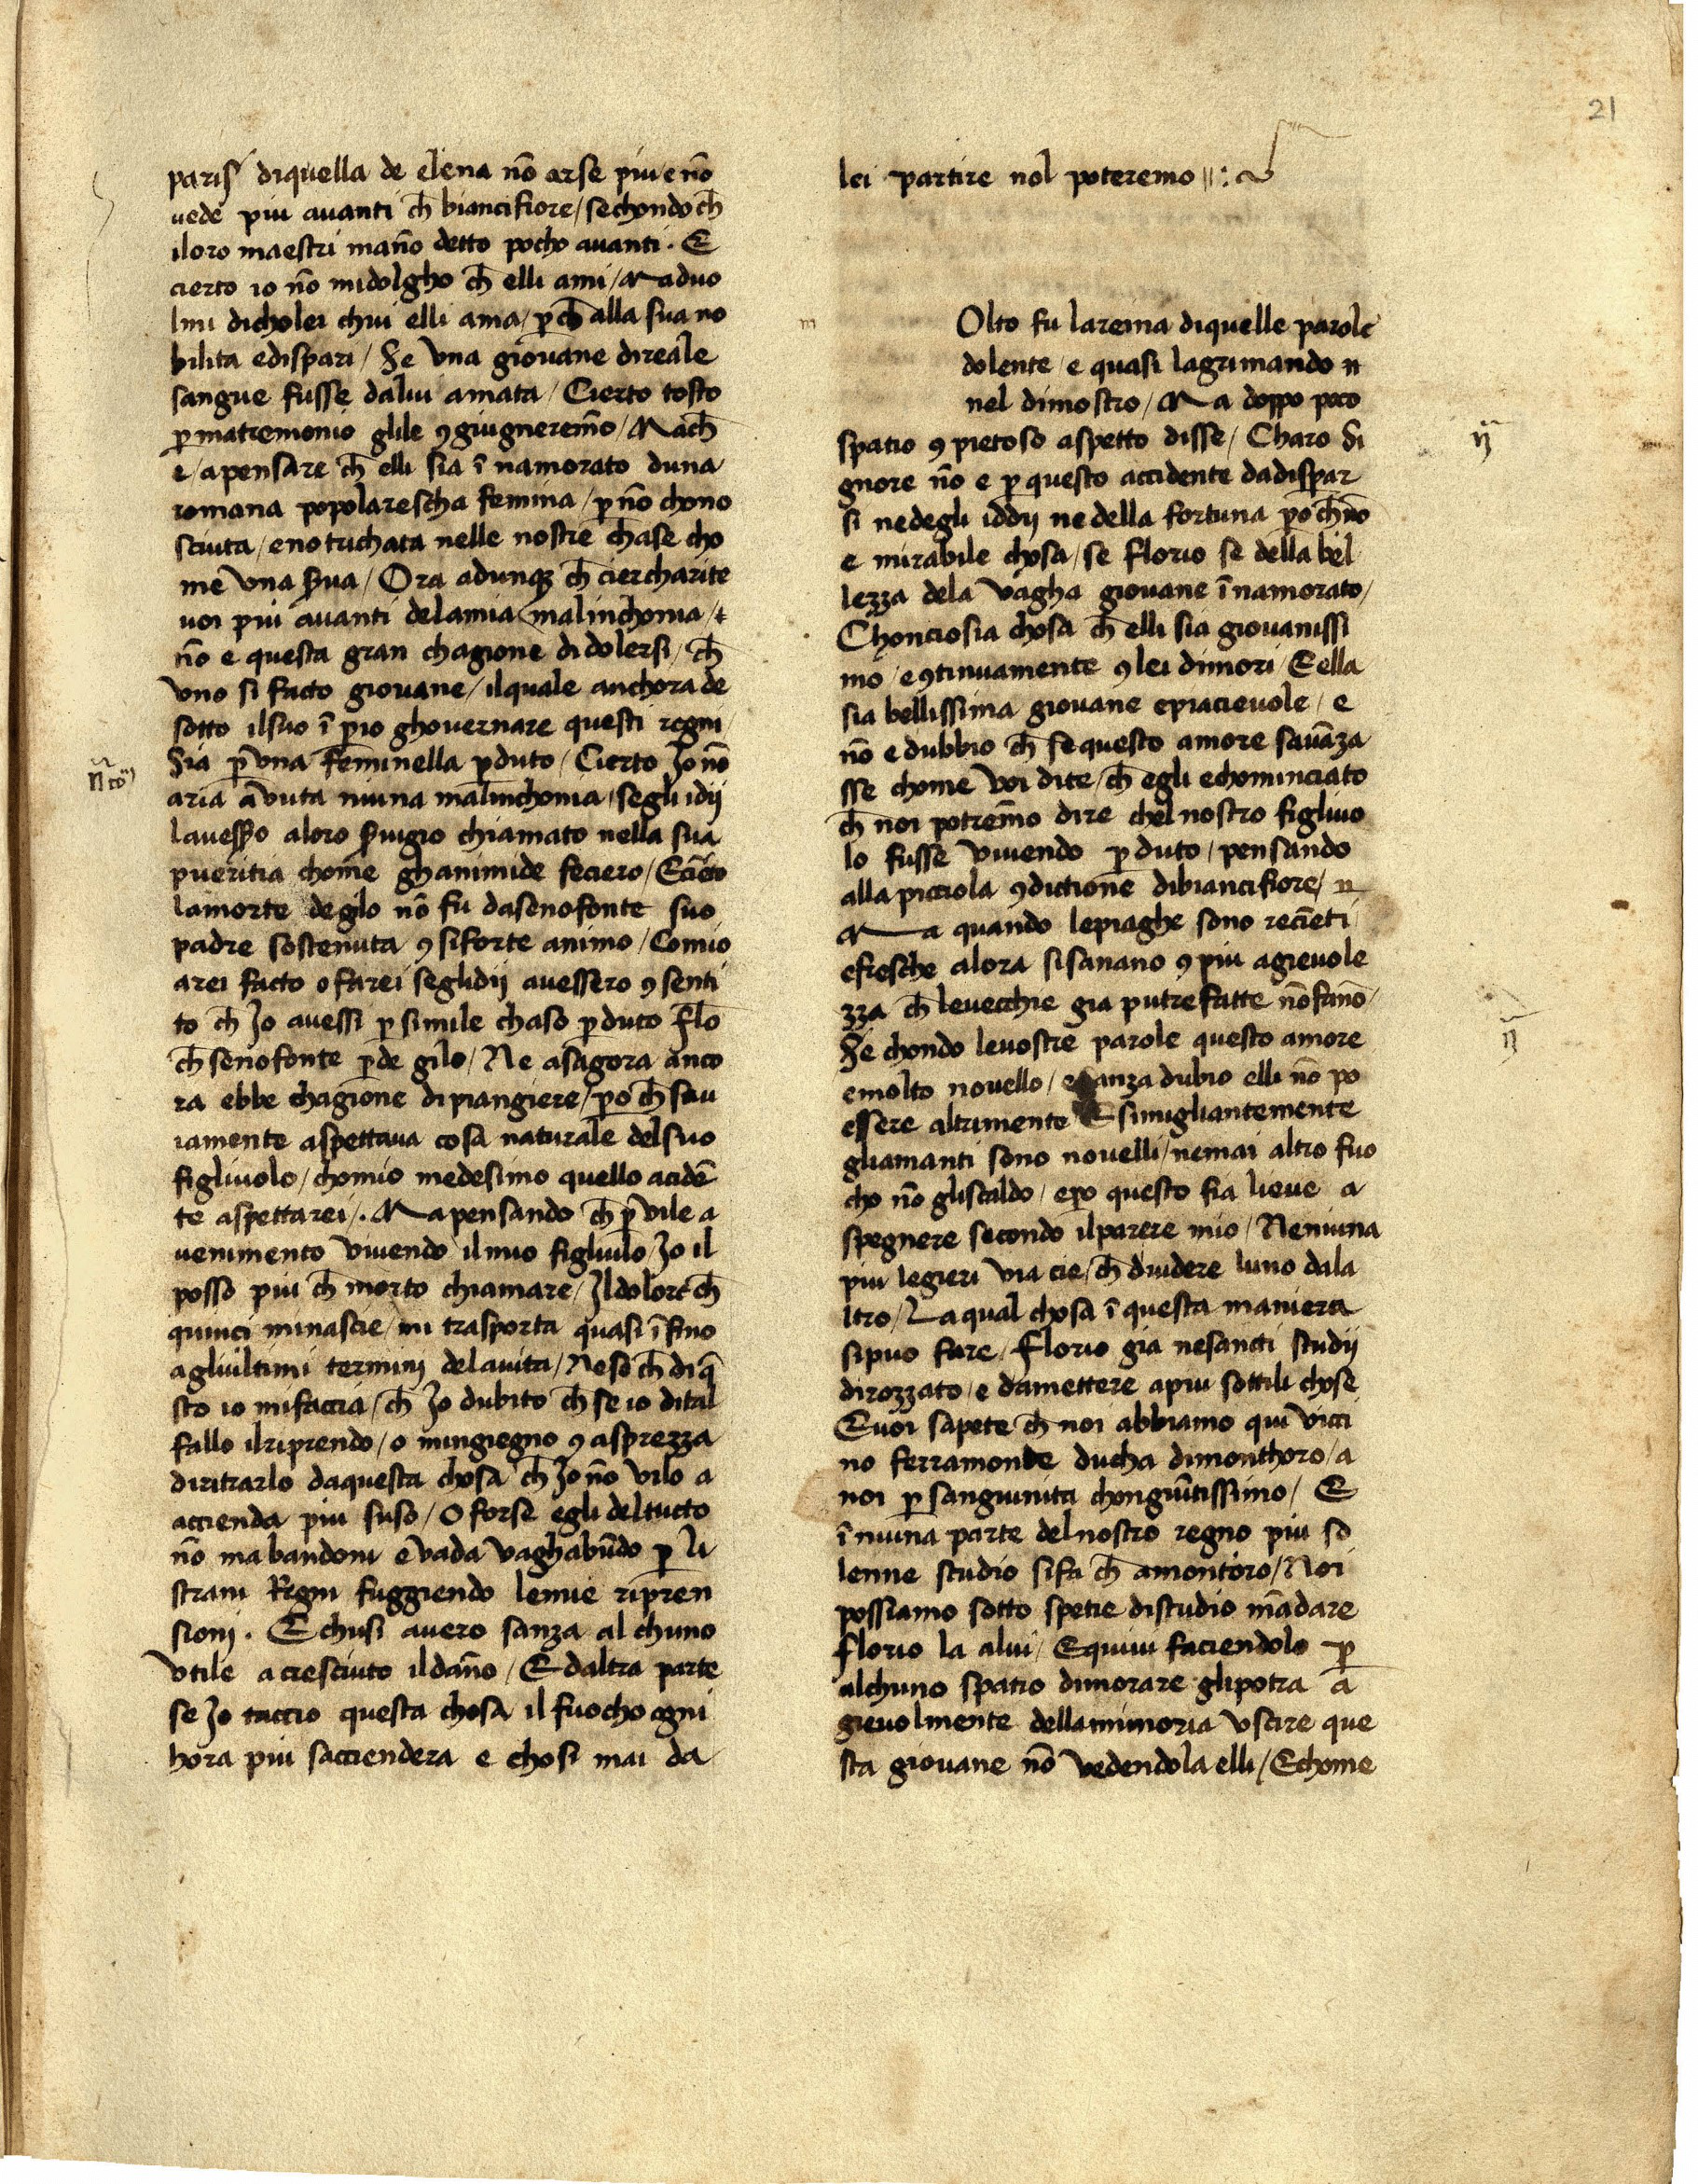 21
paris diquella de elena nō arse piu e nō
uede piu auanti ch̄ biancifiore / sechondo ch̄
iloro maestri mann̄o detto pocho auanti . E
cierto io nō midolgho ch̄ elli ami / Maduo
lmi dicholei chui elli ama / ꝑch̄ alla sua no
bilita edispari / Se vna giouane direale
sangue fusse dalui amata / Cierto tosto
ꝑ matremonio glile ꝯgiugnerem̄o / Mach̄
e / apensare ch̄ elli sia ī namorato duna
romana popolarescha femina / ꝑ nō chono
sciuta / enotrichata nelle nostre chase cho
me vna s̄ua / Ora adunqꝫ ch̄ ciercharite
uoi piu auanti delamia malinchonia /
nō e questa gran chagione didolersi / ch̄
vno si facto giouane / ilquale anchora de
sotto ilsuo ī pio ghouernare questi regni /
Sia ꝑ vna feminella ꝑduto / Cierto Io nō
aria āvuta niuna malinchonia / segli idij
lauesso aloro s̄uigio chiamato nella sua
pueritia chome ghanimide feciero / Ecierto
lamorte degilo nō fu dasenofonte suo
padre sostenuta ꝯ siforte animo / Comio
arei facto o farei seglidij auessero ꝯ senti
to ch̄ Io auessi ꝑ simile chaso ꝑduto flo
ch̄ senofonte ꝑde gilo / Ne asagora anco
ra ebbe chagione dipiangiere / ꝑo ch̄ sau
iamente aspettaua cosa naturale delsuo
figliuolo / chomio medesimo quello acidē
te aspettarei / . Mapensando ch̄ ꝑ vile a
uenimento viuendo ilmio figliulo / Io il
posso piu ch̄ morto chiamare / Ildolore ch̄
quinci minascie / mi trasporta quasi īfino
agliultimi termini delauita / Neso ch̄ diq̄
sto io mifaccia / ch̄ Io dubito ch̄ se io dital
fallo ilriprendo / o mingiegno ꝯ asprezza
diritrarlo daquesta chosa ch̄ Io nō vilo a
accienda piu suso / O forse egli deltucto
nō mabandoni e vada vaghabūdo ꝑ li
strani Regni fuggiendo lemie ripren
sioni . Echusi auero sanza alchuno
vtile acresciuto ildan̄o / Edaltra parte
se Io taccio questa chosa il fuocho ogni
hora piu sacciendera e chosi mai da
lei partire nol poteremo
m
Olto fu lareina diquelle parole
dolente / e quasi lagrimando n
nel dimostro / Ma doppo poco
spatio ꝯ pietoso aspetto disse / Charo Si
gnore nō e ꝑ questo accidente dadispar
si nedegli iddij ne della fortuna ꝑo ch̄ nō
e mirabile chosa / se florio se della bel
lezza dela vagha giouane ī namorato /
Chonciosia chosa ch̄ elli sia giouanissi
mo / e ꝯtinuamente ꝯ lei dimori / Eella
sia bellissima giouane epiacieuole / e
nō e dubbio ch̄ se questo amore sauāza
sse chome voi dite / ch̄ egli echominciato
ch̄ noi potrem̄o dire chel nostro figliuo
lo fusse viuendo ꝑduto / pensando
alla picciola ꝯdictione dibiancifiore / n
Ma quando lepiaghe sono reciēti
efresche alora sisanano ꝯ piu agieuole
zza ch̄ leuecchie gia putrefatte nōfanō
Se chondo leuostre parole questo amore
emolto nouello / esanza dubio elli nō po
essere altrimento Esimigliantemente
gliamanti sono nouelli / nemai altro fuo
cho nō gliscaldo / epo questo fia lieue a
spegnere secondo ilparere mio / Neniuna
piu legieri via cie / ch̄ diuidere luno dala
ltro / Laqual chosa ī questa maniera
sipuo fare / florio gia nesancti studij
dirozzato / e damettere apiu sottili chose
Euoi sapete ch̄ noi abbiamo qui vici
no ferramonde ducha dimonthoro / a
noi ꝑ sanguinita chongiūtissimo / E
ī niuna parte delnostro regno piu so
lenne studio sifa ch̄ amontoro / Noi
possiamo sotto spetie distudio mādare
florio la alui / Equiui faciendolo ꝑ
alchuno spatio dimorare glipotra a
gieuolmente dellamimoria vscire que
sta giouane nō vedendola elli / Echome